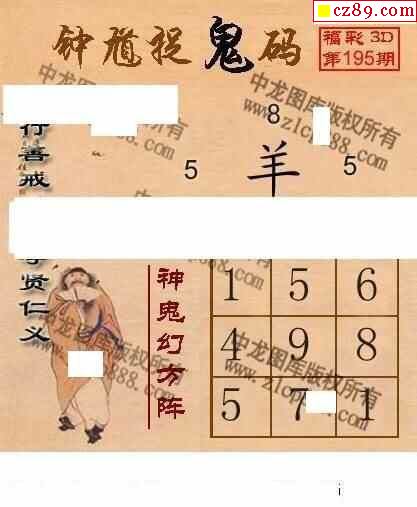 cz89.com
钟馗捉鬼码
福彩3D
第195期
8
5 羊 5
行善戒
贤仁义
神鬼幻方阵
1 5 6
4 9 8
5 7 1
中龙图库版权所有
www.zlcp888.com